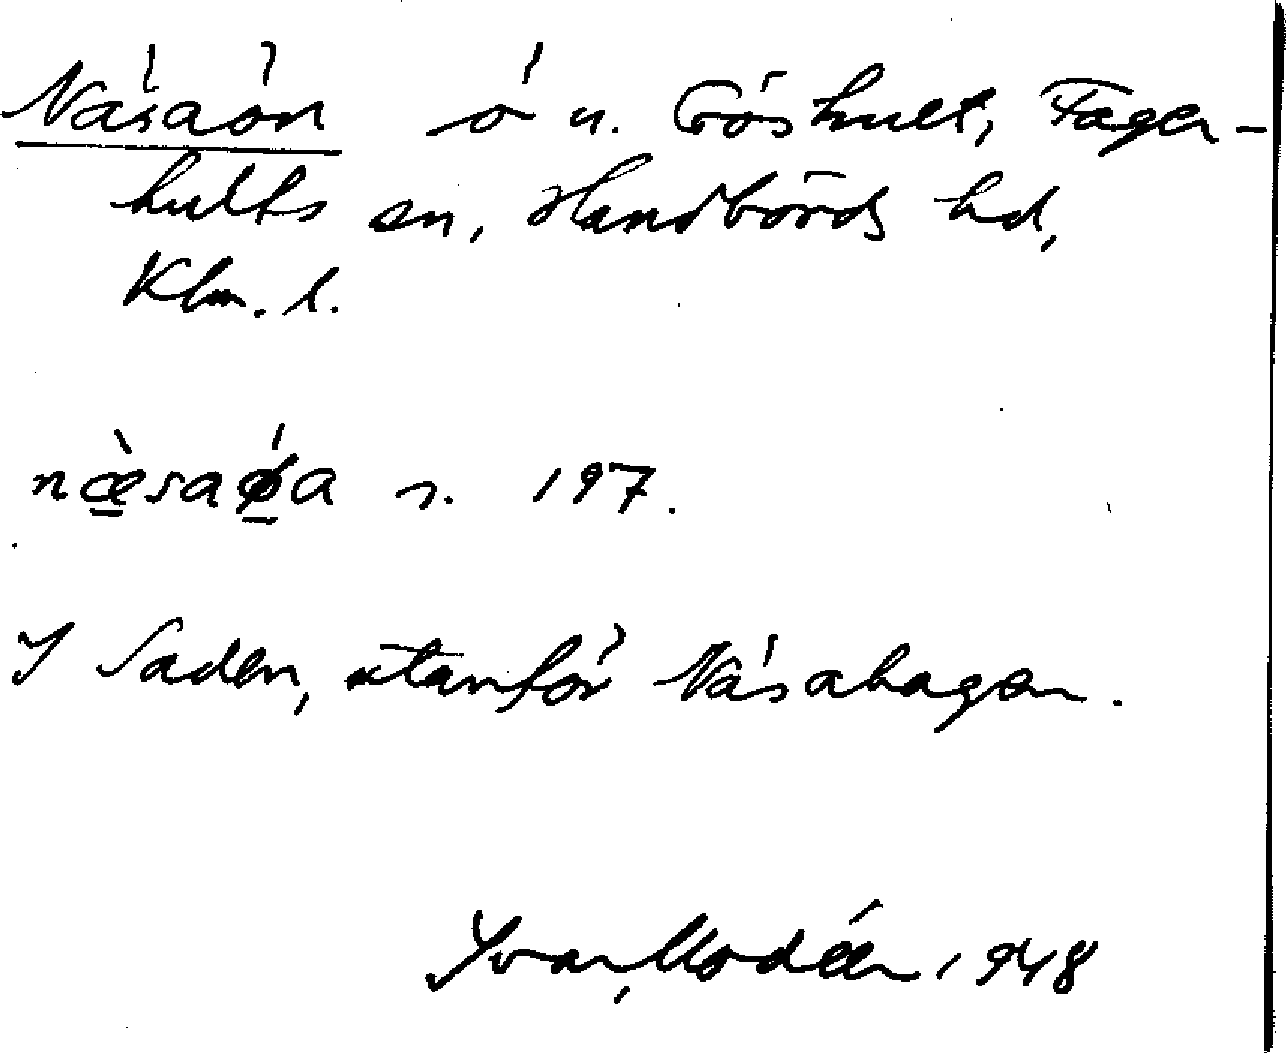 Näsaön ö u. Göshult, Fager-
hults sn, Handbörds hd,
Klm. l.
næ̀saǿa s. 197.
I Saden, utanför Näsahagen.
Ivar Modéer 1948